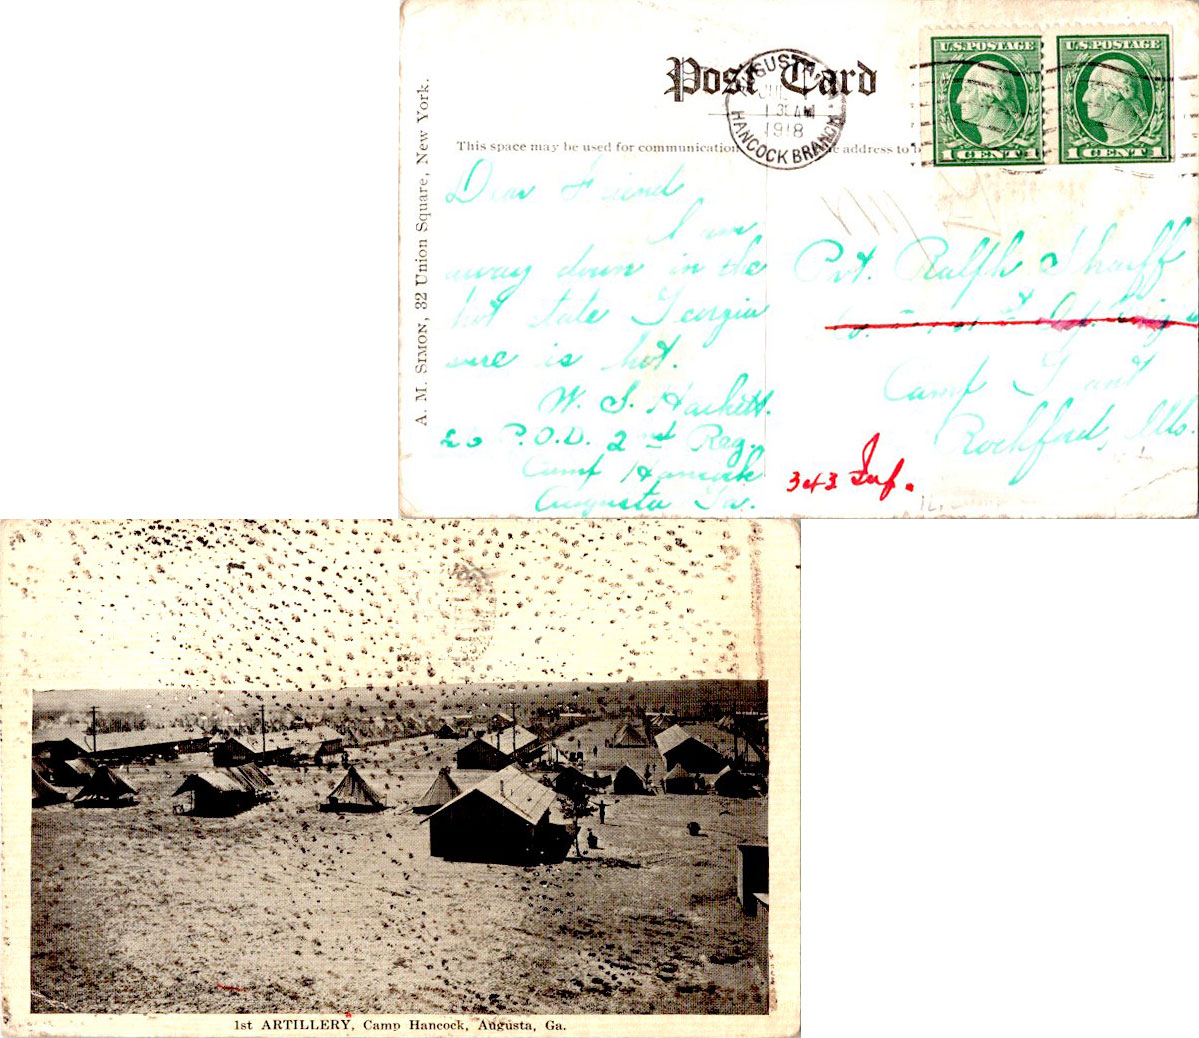 Post Card
U.S.POSTAGE
U.S.POSTAGE
1 CENT 1
1 CENT 1
AUGUSTA,
JUL
1 30 AM
1918
HANCOCK BRANCH
This space may be used for communication address to b
A. M. SIMON, 32 Union Square, New York.
Dear Friend
I am
away down in the
hot State Georgia
sure is hot.
W. S. Hackett.
Co P.O.D. 2nd Reg.
Camp Hancock
Augusta Ga.
Pvt. Ralph
Camp Grant
Rockford, Ills.
343 Inf.
1st ARTILLERY, Camp Hancock, Augusta, Ga.